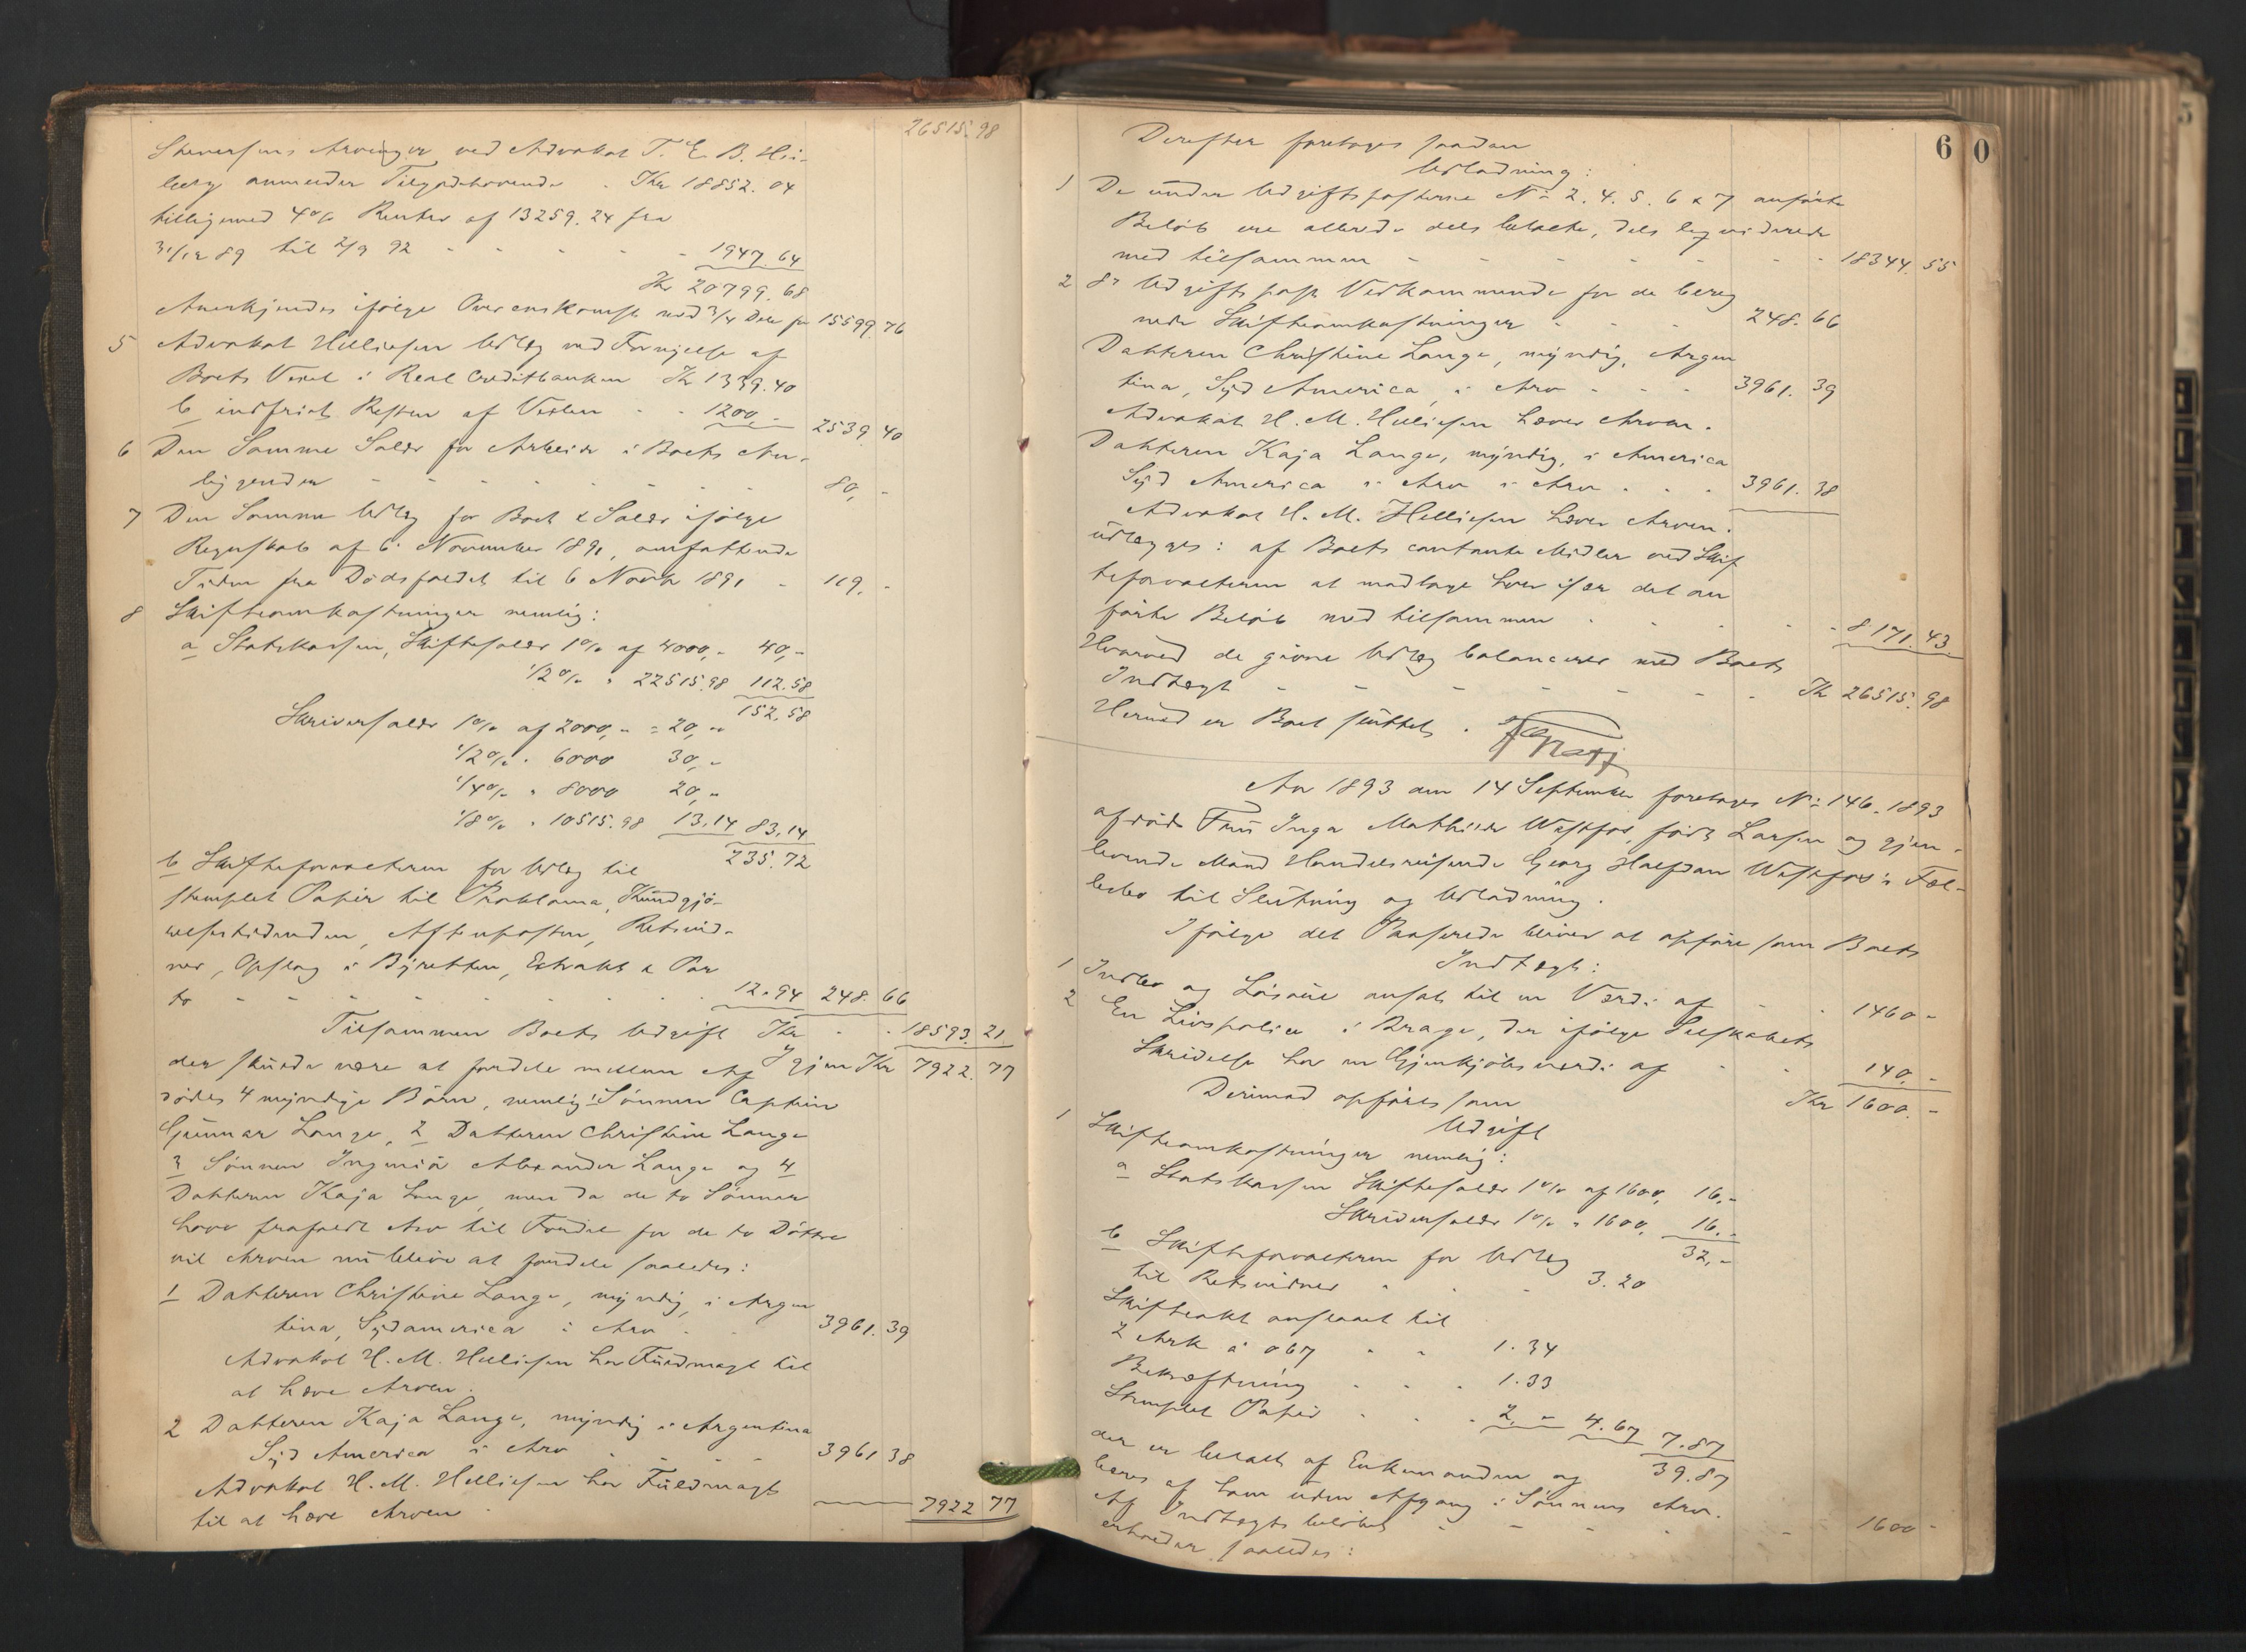 26515.98
Arvinger ved Advokat T. E. B.
berg anmelder Tilgodehavende - Kr 18852.04
tilligemed 4% Renter af 13259.24 fra
31/12 89 til 2/9 92 - - - - 1947.64
Kr 20799.68
Anerkjendes ifølge Overenskomst med 3/4 Dele for 15599 76
5 Advokat Helliesen Udlæg ved Fornyelse af
Boets Vexel i Real Creditbanken Kr 1339.40
b indfriet Resten af Vexlen - - 1200,- 2539 40
6 Den Samme Salær for Arbeide i Boets An-
liggender - - - - - - 80,-
7 Den Samme Udlæg for Boet & Salær ifølge
Regnskab af 6 November 1891, omfattende
Tiden fra Dødsfaldet til 6 Novbr 1891 - 119.-
8 Skifteomkostninger nemlig:
a Statskassen, Skiftesalær 1% af 4000,- 40,-
1/2% " 22515.98 112.58
152.58
Skriversalær 1% af 2000,- = 20,-
1/2% " 6000 30,-
1/4% " 8000 20,-
1/8% " 10515.98 13.14 83.14
235.72
b Skifteforvalteren for Udlæg til
stemplet Papir til Proklama, Kundgjø-
relsestidenden, Aftenposten, Retsvid-
ner, Opslag i Byretten, Extrakt & Por
to - - - - - - 12.94 248.66
Tilsammen Boets Udgift Kr - - 18593.21
Igjen Kr 7922.77
der skulde være at fordele mellem Af
dødes 4 myndige Børn, nemlig: 1 Sønnen Captein
Gunnar Lange, 2 Datteren Christine Lange
3 Sønnen Ingeniør Alexander Lange og 4
Datteren Kaja Lange, men da de to Sønner
have frafaldt Arv til Fordel for de to Døttre
vil Arven nu blive at fordele saaledes:
1 Datteren Christine Lange, myndig, i Argen
tina, Sydamerica i Arv - - 3961.39
Advokat H. M. Helliesen har Fuldmagt til
at hæve Arven.
2 Datteren Kaja Lange, myndig i Argentina
Syd America i Arv - - - 3961 38
Advokat H. M. Helliesen har Fuldmagt
til at hæve Arven - 7922 77
60
Derefter foretages saadan
Udlodning:
1 De under Udgiftsposterne No 2. 4. 5. 6 & 7 anførte
Beløb ere allerede dels betalte, dels liqviderede
med tilsammen - - - - - - 18344.55
2 8de Udgiftspost Vedkommende for de bereg
nede Skifteomkostninger - - - 248.66
Datteren Christine Lange, myndig, Argen
tina, Syd America, i Arv - - - 3961.39
Advokat H. M. Helliesen hæver Arven.
Datteren Kaja Lange, myndig, i America
Syd America i Arv i Arv - - - 3961.38
Advokat H. M. Helliesen hæver Arven.
udlægges: af Boets contante Midler ved Skif
teforvalteren at modtage hver især det an
førte Beløb med tilsammen - - - - 8171.43
Hvorved de givne Udlæg balancerer med Boets
Indtægt - - - - - - Kr 26515.98
Hermed er Boet sluttet.
Aar 1893 den 14 September foretoges No 146-1893
afdøde Fru Inga Mathilde Wastfos, født Larsen og gjen-
levende Mand Handelsreisende Georg Halfdan Wastfos's Fæl-
lesbo til Slutning og Udlodning.
Ifølge det Passerede bliver at opføre som Boets
Indtægt:
1 Indbo og Løsøre ansat til en Værdi af - - 1460-
2 En Livspolice i Brage, der ifølge Selskabets
Skrivelse har en Gjenkjøbsværdi af - - 140,-
Kr 1600.-
Derimod opføres som
Udgift
1 Skifteomkostninger nemlig:
a Statskassen Skiftesalær 1% af 1600, 16.-
Skriversalær 1% " 1600, 16.-
32,-
b Skifteforvalteren for Udlæg
til Retsvidner - - - 3.20
Skifteakt anslaaet til
2 Ark à 067 - - 1.34
Bekræftning - - - 1.33
Stemplet Papir - - - 2,- 4.67 7.87
39.87
der er betalt af Enkemanden og
bæres af ham uden Afgang i Sønnens Arv.
Af Indtægtsbeløbet - - - - - 1600-
erholder saaledes: